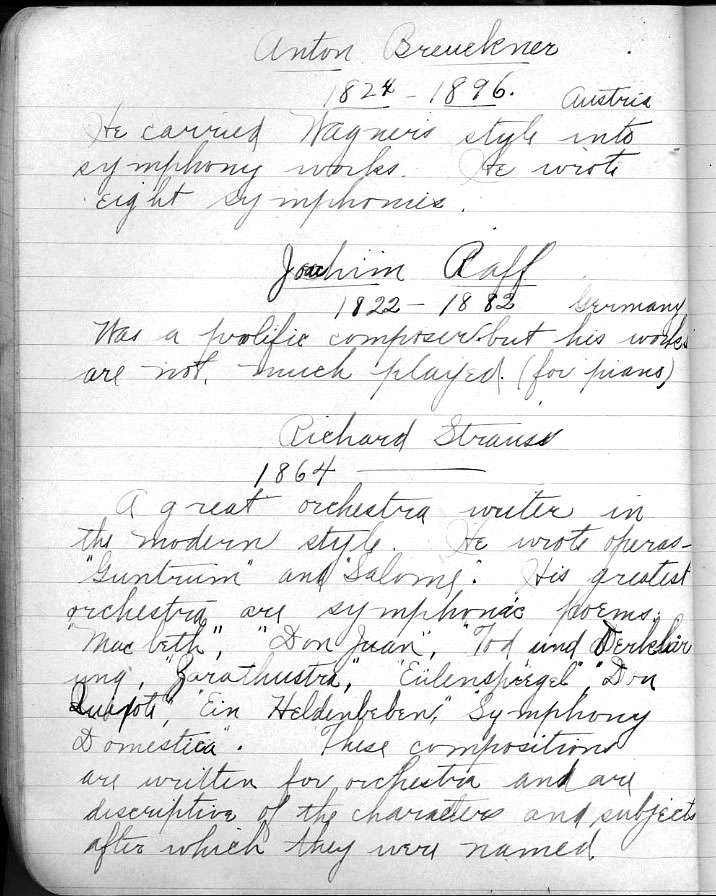 Anton Breuckner
1824 - 1896. Austria
He carried Wagner's style into
symphony works. He wrote
eight symphonies.
Joachim Raff
1822 - 1882 Germany
Was a prolific composer but his works
are not, much played. (for piano)
Richard Strauss
1864
A great orchestra writer in
the modern style. He wrote operas-
"Guntrum" and "Salome". His greatest
orchestra are symphonic poems.
"Macbeth", "Don Juan", "Tod und Verklär
ung, "Zarathustra", "Eulenspiegel", "Don
Quixote", "Ein Heldenbeben", "Symphony
Domestica". These compositions
are written for orchestra and are
discriptive of the characters and subjects
after which they were named.